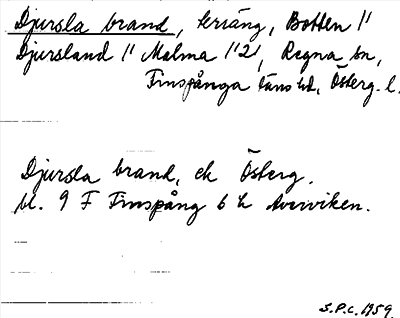 Djursla brand, terräng, Botten 1/1
Djursland 1/1 Malma 1/2, Regna sn,
Finspånga läns hd, Österg. l.
Djursla brand, ek Österg.
bl. 9 F Finspång 6 h Averviken.
S.P.C. 1959.